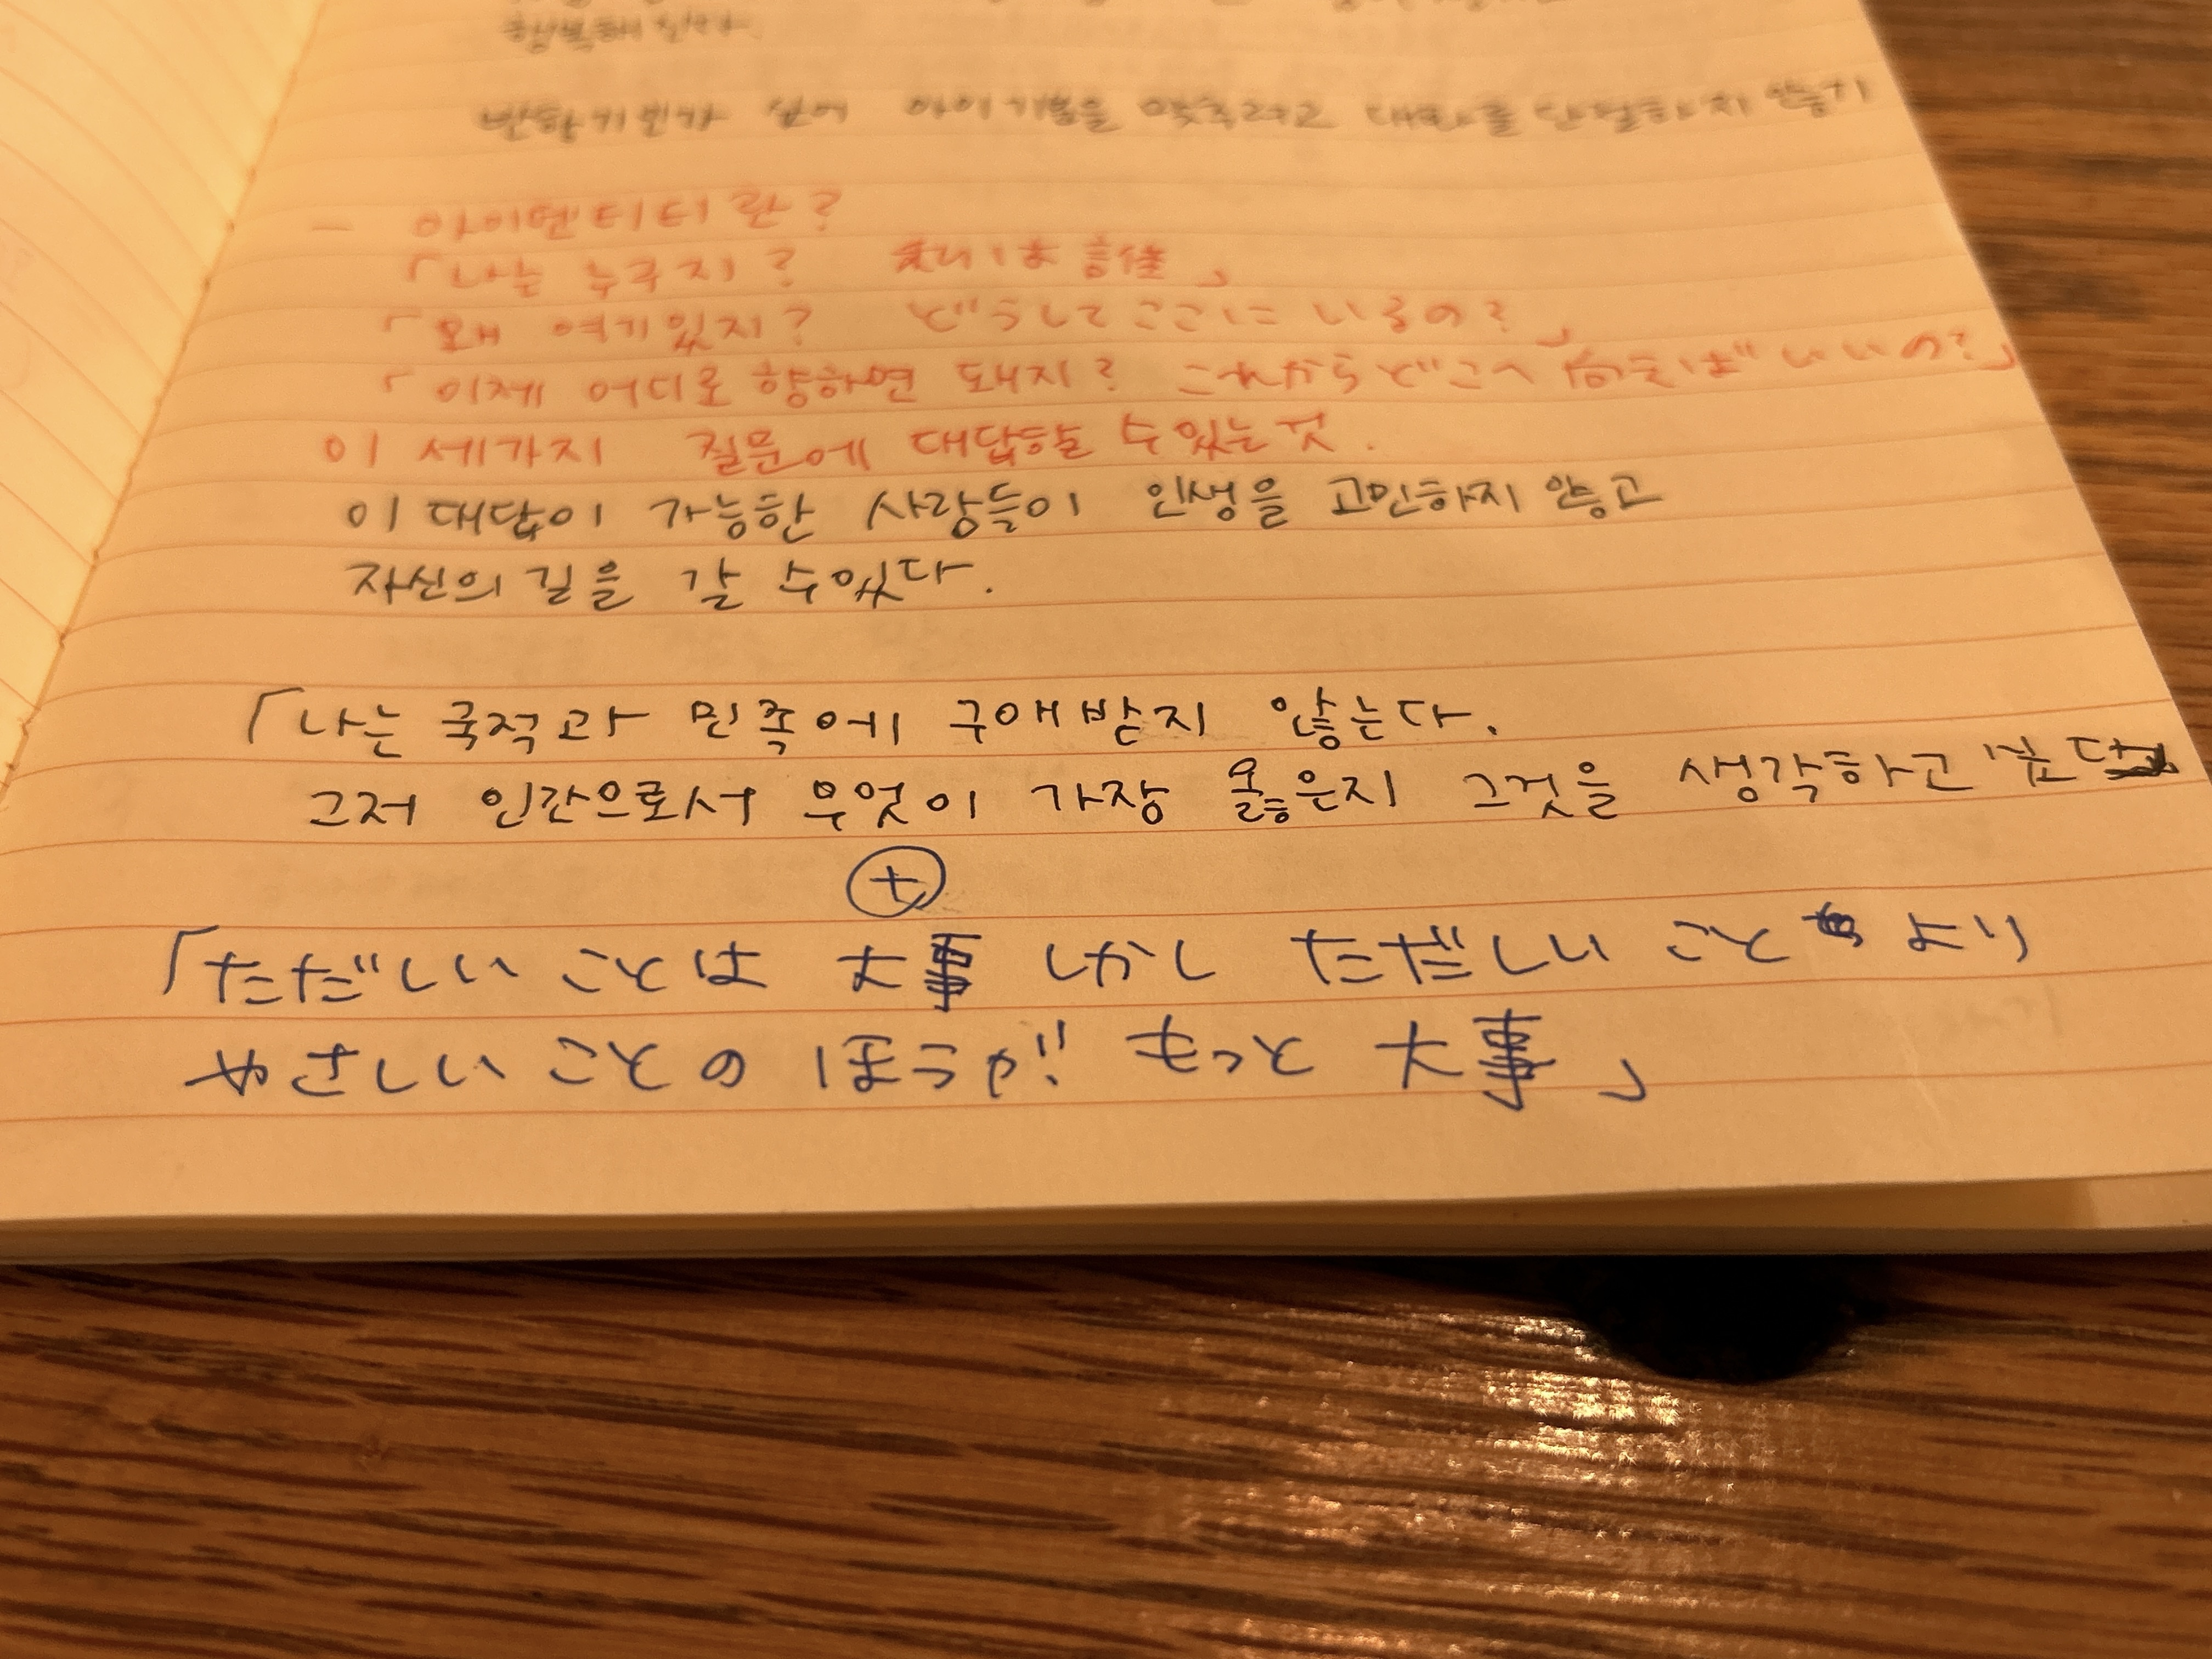 행복해진다.
반항기인가 싶어 아이 기분을 맞추려고 대화를 단절하지 않기
- 아이덴티티란?
「나는 누구지? 私は誰」
「왜 여기있지? どうしてここにいるの?」
「이제 어디로 향하면 돼지? これからどこへ向えばいいの?」
이 세가지 질문에 대답할 수있는것.
이 대답이 가능한 사람들이 인생을 고민하지 않고
자신의 길을 갈 수있다.
「나는 국적과 민족에 구애받지 않는다.
그저 인간으로서 무엇이 가장 옳은지 그것을 생각하고 싶다
+
「ただしいことは 大事 しかし ただしい こと より
やさしい ことの ほうが もっと 大事」